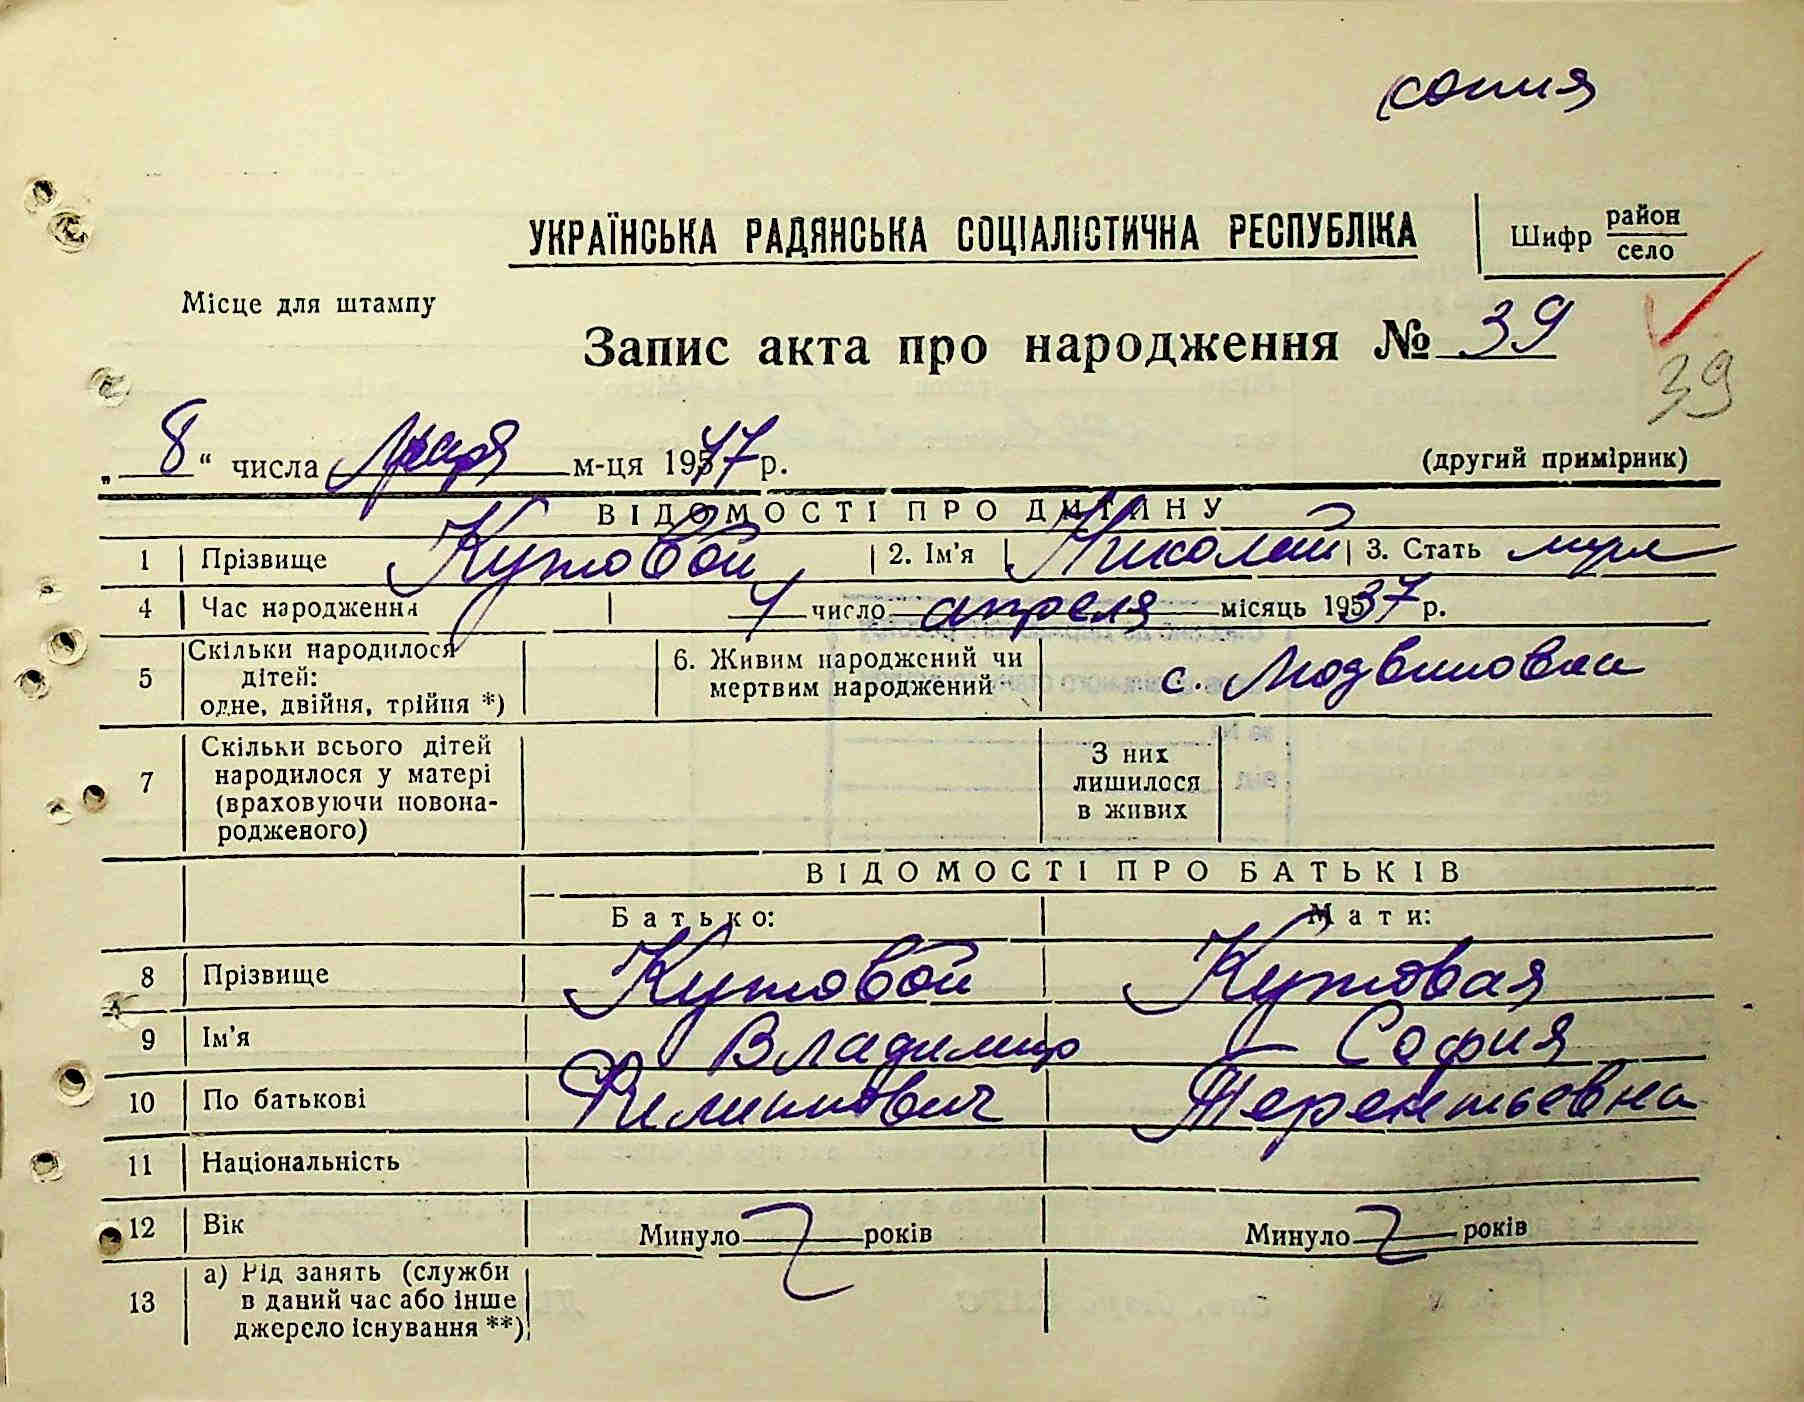 копия
УКРАЇНСЬКА РАДЯНСЬКА СОЦІАЛІСТИЧНА РЕСПУБЛІКА
Шифр район
село
Місце для штампу
Запис акта про народження № 39
39
„ 8 “ числа марта м-ця 1947 р.
(другий примірник)
ВІДОМОСТІ ПРО ДИТИНУ
1 Прізвище Кутовой 2. Ім'я Николай 3. Стать муж
4 Час народження 7 число апреля місяць 1937 р.
5 Скільки народилося дітей: одне, двійня, трійня *)
6. Живим народжений чи мертвим народжений с. Людвиновка
7 Скільки всього дітей народилося у матері (враховуючи новонародженого)
З них лишилося в живих
ВІДОМОСТІ ПРО БАТЬКІВ
Батько: Мати:
8 Прізвище Кутовой Кутовая
9 Ім'я Владимир София
10 По батькові Филиппович Терентьевна
11 Національність
12 Вік Минуло років Минуло років
13 а) Рід занять (служби в даний час або інше джерело існування **)